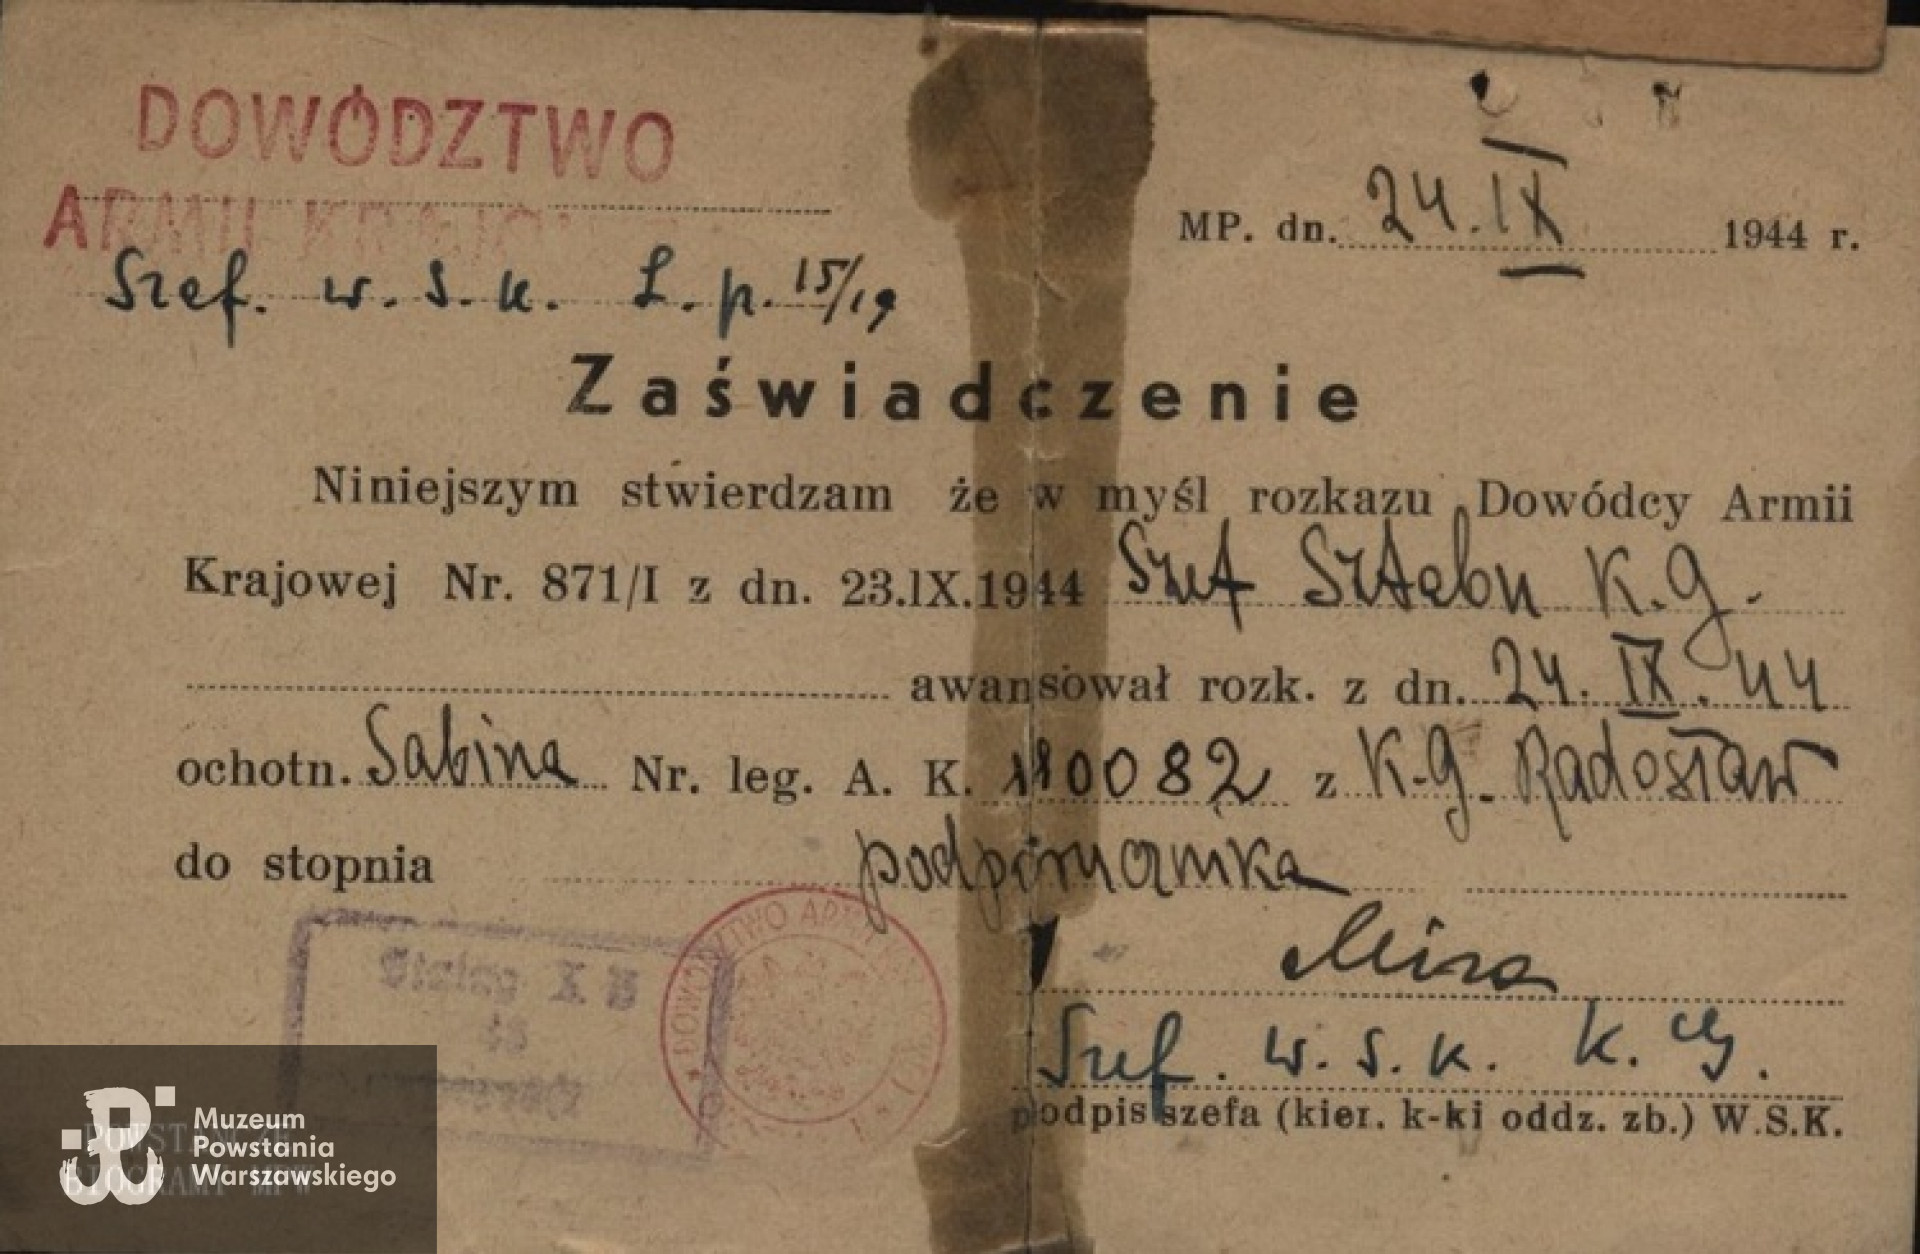 DOWÓDZTWO
ARMII KRAJO
Szef. W.S.K. L.p. 15/19
MP. dn. 24.IX 1944 r.
Zaświadczenie
Niniejszym stwierdzam że w myśl rozkazu Dowódcy Armii
Krajowej Nr. 871/I z dn. 23.IX.1944 Szef Sztabu K.G.
awansował rozk. z dn. 24.IX.44
ochotn. Sabina Nr. leg. A. K. 110082 z K.G. Radosław
do stopnia podporucznika
Mira
Szef. W.S.K. K.G.
podpis szefa (kier. k-ki oddz. zb.) W.S.K.
DOWÓDZTWO ARMII
Stalag X B
Muzeum
Powstania
Warszawskiego
BIOGRAMY MPW